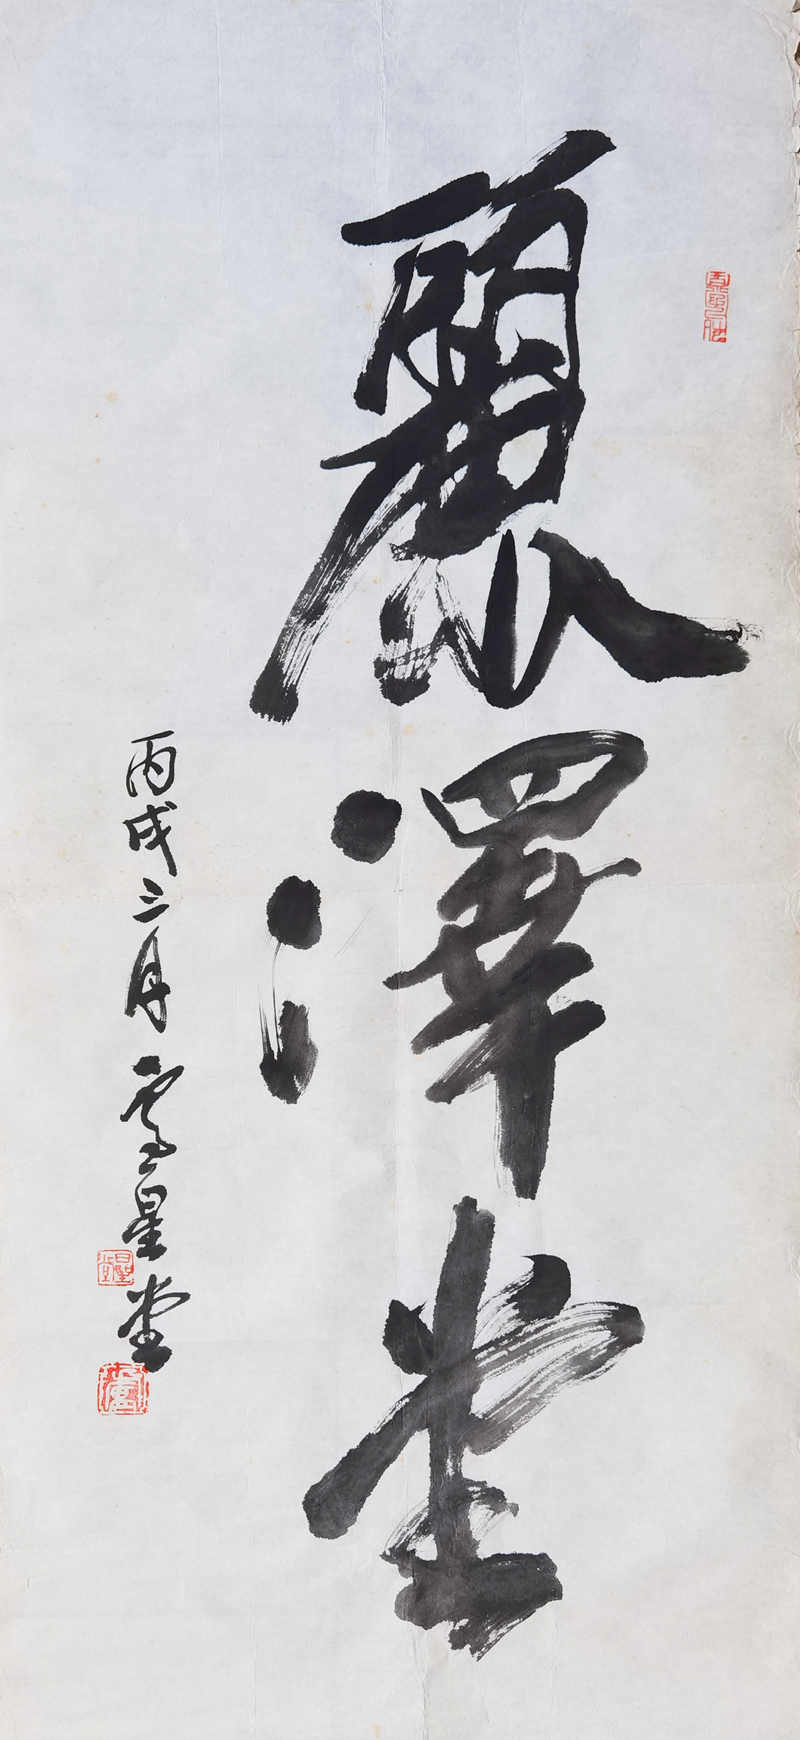 麗澤堂
丙戌三月 雪星堂